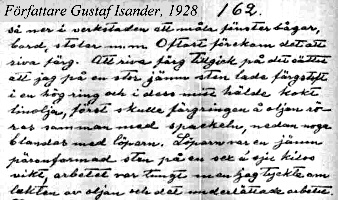 Författare Gustaf Isander, 1928
162.
så ner i verkstaden att måla fönster bågar,
bord, stolar m.m Oftast förekom det att
riva färg. Att riva färg tillgick på det sättet
att jag på en stor jämn sten lade färgstoft
i en hög ring och i dess mitt hälde kokt
linolja, först skulle färgringen å oljan rö-
ras samman med spackeln, sedan noga
blandas med löparn. Löparn var en jämn
päronformad sten på en sex à sju kilos
vikt, arbetet var tungt men jag tyckte om
lukten av oljan och det underlättade arbetet.